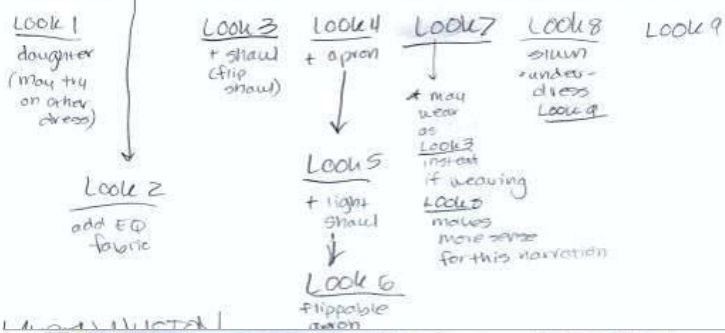 Look 1
daughter
(may try
on other
dress)
Look 2
add EQ
fabric
Look 3
+ shawl
(flip
shawl)
Look 4
+ apron
Look 5
+ light
shawl
Look 6
flippable
apron
Look 7
* may
wear
as
Look 3
instead
if wearing
Look 3
makes
more sense
for this narration
Look 8
slum
under-
dress
Look 9
Look 9